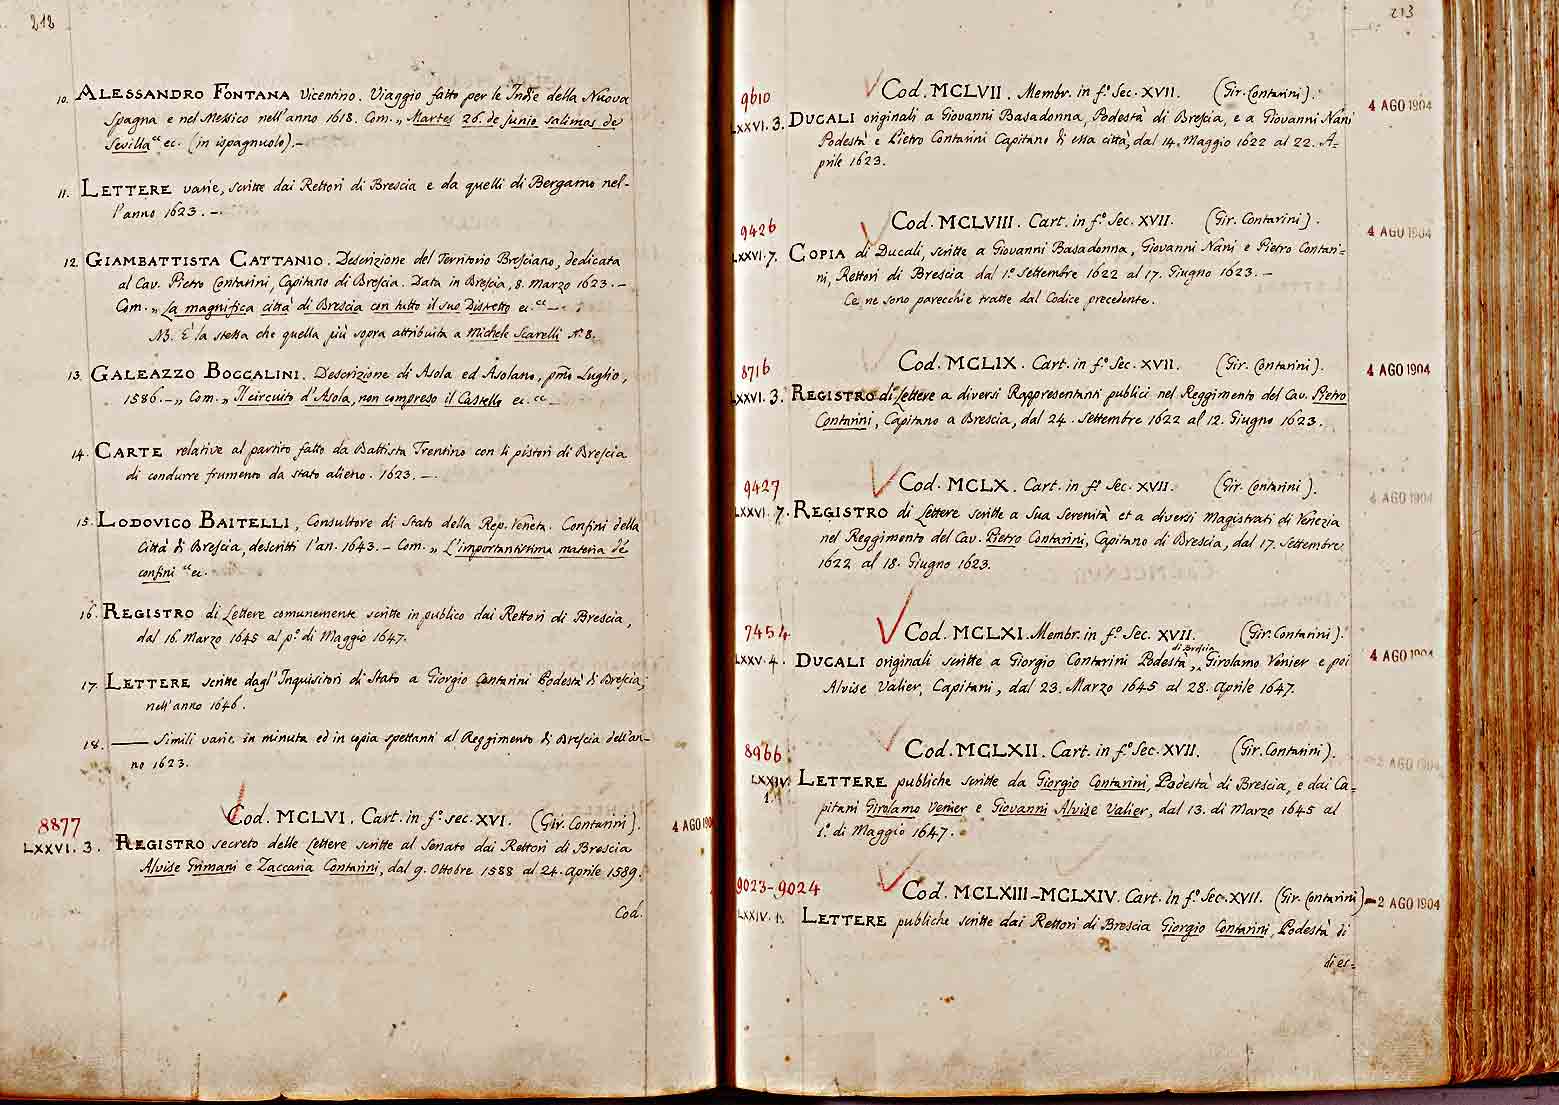 212
10. ALESSANDRO FONTANA Vicentino. Viaggio fatto per le Indie della Nuova
Spagna e nel Messico nell'anno 1618. Com. „ Martes 26. de Junio salimos de
Sevilla “ ec. (in ispagnuolo).—
11. LETTERE varie, scritte dai Rettori di Brescia e da quelli di Bergamo nel-
l'anno 1623. —.
12. GIAMBATTISTA CATTANIO. Descrizione del Territorio Bresciano, dedicata
al Cav. Pietro Contarini, Capitano di Brescia. Data in Brescia, 8. Marzo 1623. —
Com. „ La magnifica città di Brescia con tutto il suo Distretto ec. “ —
NB. È la stessa che quella più sopra attribuita a Michele Scarelli N.° 8.
13. GALEAZZO BOCCALINI. Descrizione di Asola ed Asolano, pmo Luglio,
1586. — „ Com. „ Il circuito d'Asola, non compreso il Castello ec. “ —
14. CARTE relative al partito fatto da Battista Trentino con li pistori di Brescia
di condurre frumento da stato alieno. 1623. —.
15. LODOVICO BAITELLI, Consultore di Stato della Rep. Veneta. Confini della
Città di Brescia, descritti l'an. 1643. — Com. „ L'importantissima materia de'
confini “ ec.
16. REGISTRO di Lettere comunemente scritte in publico dai Rettori di Brescia,
dal 16. Marzo 1645 al p.° di Maggio 1647.
17. LETTERE scritte dagl'Inquisitori di Stato a Giorgio Contarini Podestà di Brescia,
nell'anno 1646.
18. —— Simili varie, in minuta ed in copia spettanti al Reggimento di Brescia dell'an-
no 1623.
8877 Cod. MCLVI. Cart. in f.° sec. XVI. (Gir. Contarini). 4 AGO 190
LXXVI. 3. REGISTRO secreto delle Lettere scritte al Senato dai Rettori di Brescia
Alvise Grimani e Zaccaria Contarini, dal 9. Ottobre 1588 al 24. Aprile 1589.
Cod.
213
9610 Cod. MCLVII. Membr. in f.° Sec. XVII. (Gir. Contarini). 4 AGO 1904
LXXVI. 3. DUCALI originali a Giovanni Basadonna, Podestà di Brescia, e a Giovanni Nani
Podestà e Pietro Contarini Capitano di essa città, dal 14. Maggio 1622 al 22. A-
prile 1623.
9426 Cod. MCLVIII. Cart. in f.° Sec. XVII. (Gir. Contarini). 4 AGO 1904
LXXVI. 7. COPIA di Ducali, scritte a Giovanni Basadonna, Giovanni Nani e Pietro Contari-
ni, Rettori di Brescia dal 1.° Settembre 1622 al 17. Giugno 1623. —
Ce ne sono parecchie tratte dal Codice precedente.
8716 Cod. MCLIX. Cart. in f.° Sec. XVII. (Gir. Contarini). 4 AGO 1904
LXXVI. 3. REGISTRO di Lettere a diversi Rappresentanti publici nel Reggimento del Cav. Pietro
Contarini, Capitano a Brescia, dal 24. Settembre 1622 al 12. Giugno 1623.
9427 Cod. MCLX. Cart. in f.° Sec. XVII. (Gir. Contarini). 4 AGO 1904
LXXVI. 7. REGISTRO di Lettere scritte a Sua Serenità et a diversi Magistrati di Venezia
nel Reggimento del Cav. Pietro Contarini, Capitano di Brescia, dal 17. Settembre
1622 al 18. Giugno 1623.
7454 Cod. MCLXI. Membr. in f.° Sec. XVII. (Gir. Contarini).
di Brescia
LXXV. 4. DUCALI originali scritte a Giorgio Contarini Podestà, Girolamo Venier e poi 4 AGO 1904
Alvise Valier, Capitani, dal 23. Marzo 1645 al 28. Aprile 1647.
8966 Cod. MCLXII. Cart. in f.° Sec. XVII. (Gir. Contarini). 2 AGO 1904
LXXIV. LETTERE publiche scritte da Giorgio Contarini, Podestà di Brescia, e dai Ca-
1. pitani Girolamo Venier e Giovanni Alvise Valier, dal 13. di Marzo 1645 al
1.° di Maggio 1647.
9023-9024 Cod. MCLXIII–MCLXIV. Cart. in f.° Sec. XVII. (Gir. Contarini) — 2 AGO 1904
LXXIV. 1. LETTERE publiche scritte dai Rettori di Brescia Giorgio Contarini, Podestà di
di es-